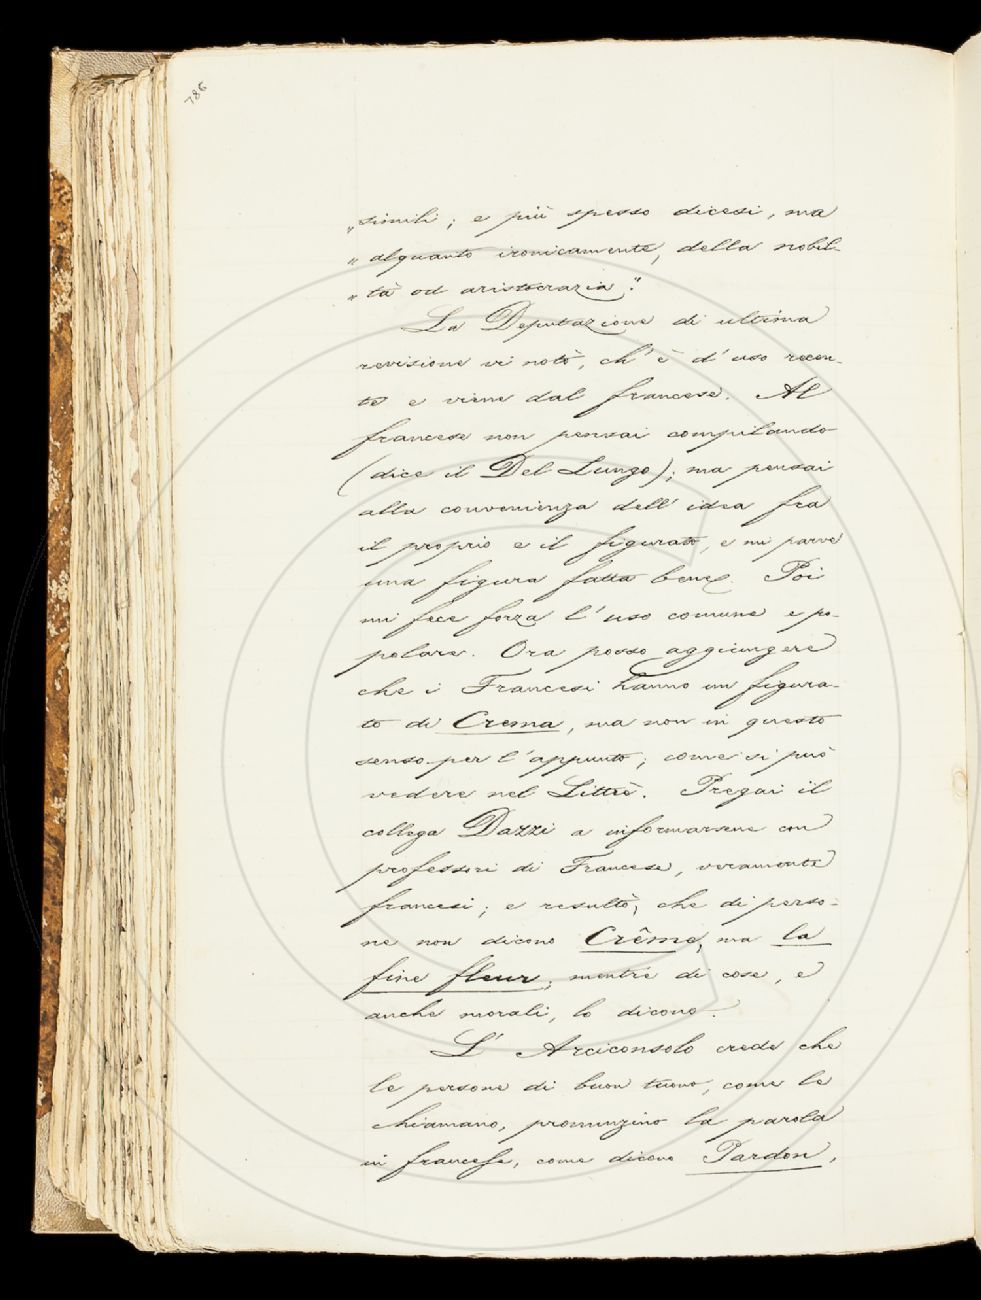 786
„simili; e più spesso dicesi, ma
„ alquanto ironicamente, della nobil-
„ tà od aristocrazia".
La Deputazione di ultima
revisione vi notò, ch'è d'uso recen-
te e viene dal francese. Al
francese non pensai compilando
(dice il Del Lungo); ma pensai
alla convenienza dell'idea fra
il proprio e il figurato, e mi parve
una figura fatta bene. Poi
mi fece forza l'uso comune e po-
polare. Ora posso aggiungere
che i Francesi hanno un figura-
to di Crema, ma non in questo
senso per l'appunto; come si può
vedere nel Littré. Pregai il
collega Dazzi a informarsene con
professori di Francese, veramente
francesi; e resultò, che di perso-
ne non dicono Crême, ma la
fine fleur; mentre di cose, e
anche morali, lo dicono.
L'Arciconsolo crede che
le persone di buon tuono, come le
chiamano, pronunzino la parola
in francese, come dicono Pardon,